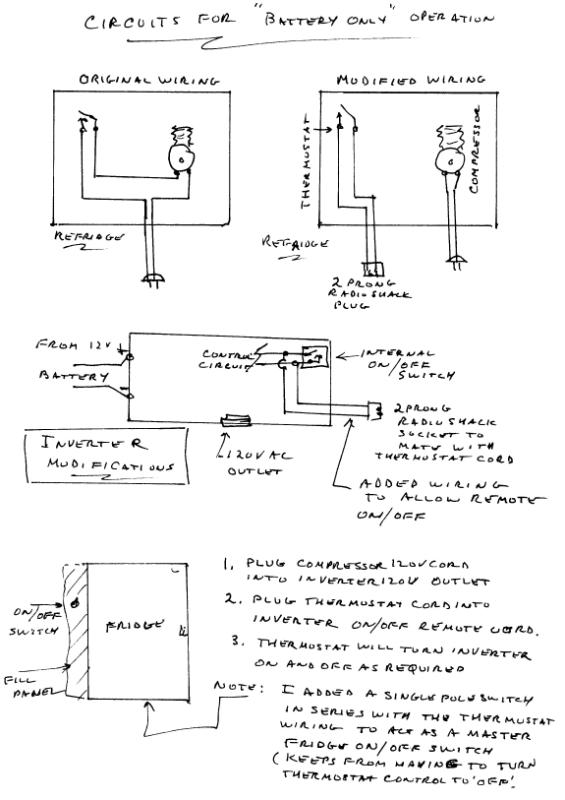 CIRCUITS FOR "BATTERY ONLY" OPERATION
ORIGINAL WIRING
MODIFIED WIRING
THERMOSTAT
COMPRESSOR
REFRIDGE
REFRIDGE
2 PRONG
RADIOSHACK
PLUG
FROM 12V
BATTERY
+
-
CONTROL
CIRCUIT
INTERNAL
ON/OFF
SWITCH
2 PRONG
RADIO SHACK
SOCKET TO
MATE WITH
THERMOSTAT CORD
INVERTER
MODIFICATIONS
120VAC
OUTLET
ADDED WIRING
TO ALLOW REMOTE
ON/OFF
ON/OFF
SWITCH
FRIDGE
FILL
PANEL
1. PLUG COMPRESSOR 120V CORD
INTO INVERTER 120V OUTLET
2. PLUG THERMOSTAT CORD INTO
INVERTER ON/OFF REMOTE CORD.
3. THERMOSTAT WILL TURN INVERTER
ON AND OFF AS REQUIRED
NOTE: I ADDED A SINGLE POLE SWITCH
IN SERIES WITH THE THERMOSTAT
WIRING TO ACT AS A MASTER
FRIDGE ON/OFF SWITCH
(KEEPS FROM HAVING TO TURN
THERMOSTAT CONTROL TO 'OFF'.